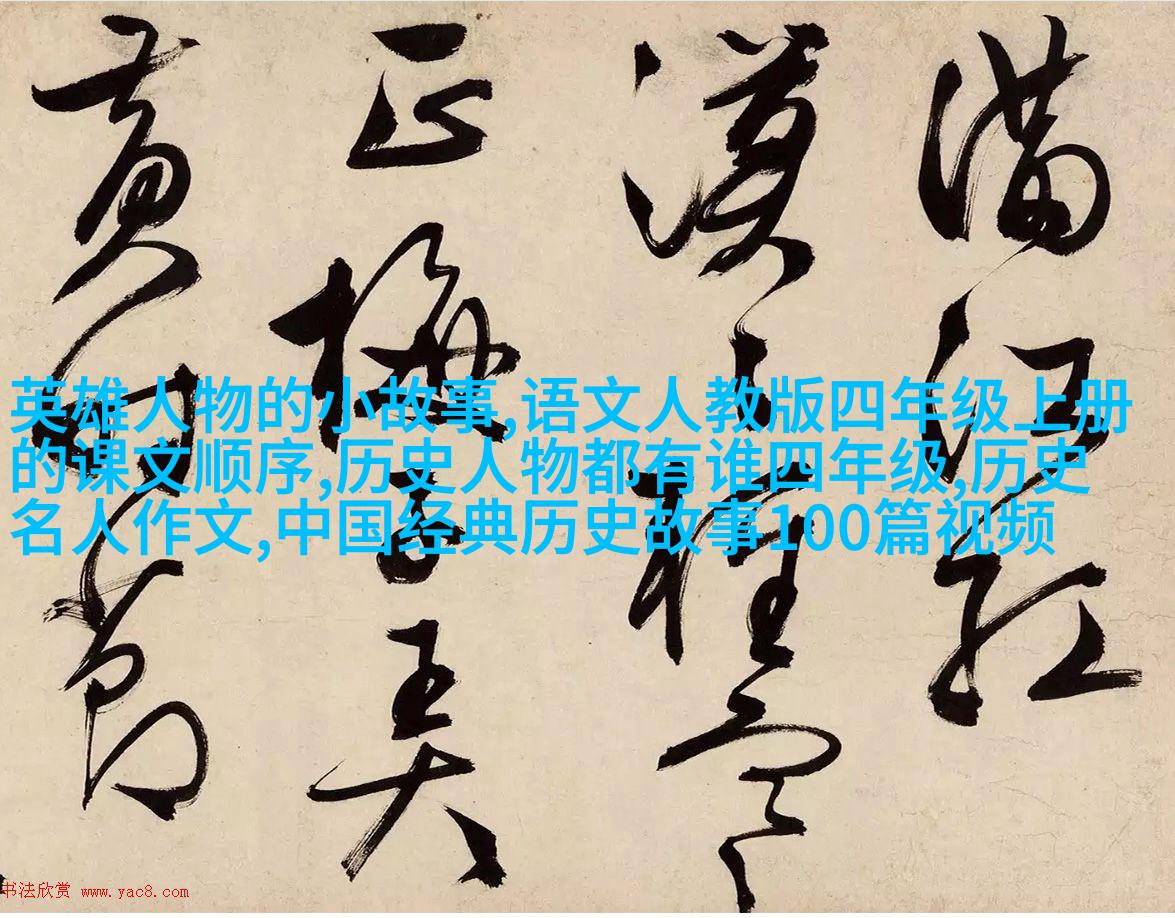 滿江紅
漠〻輕陰
正梅子弄
黃時節
英雄人物的小故事,语文人教版四年级上册
的课文顺序,历史人物都有谁四年级,历史
名人作文,中国经典历史故事100篇视频
书法欣赏 www.yac8.com